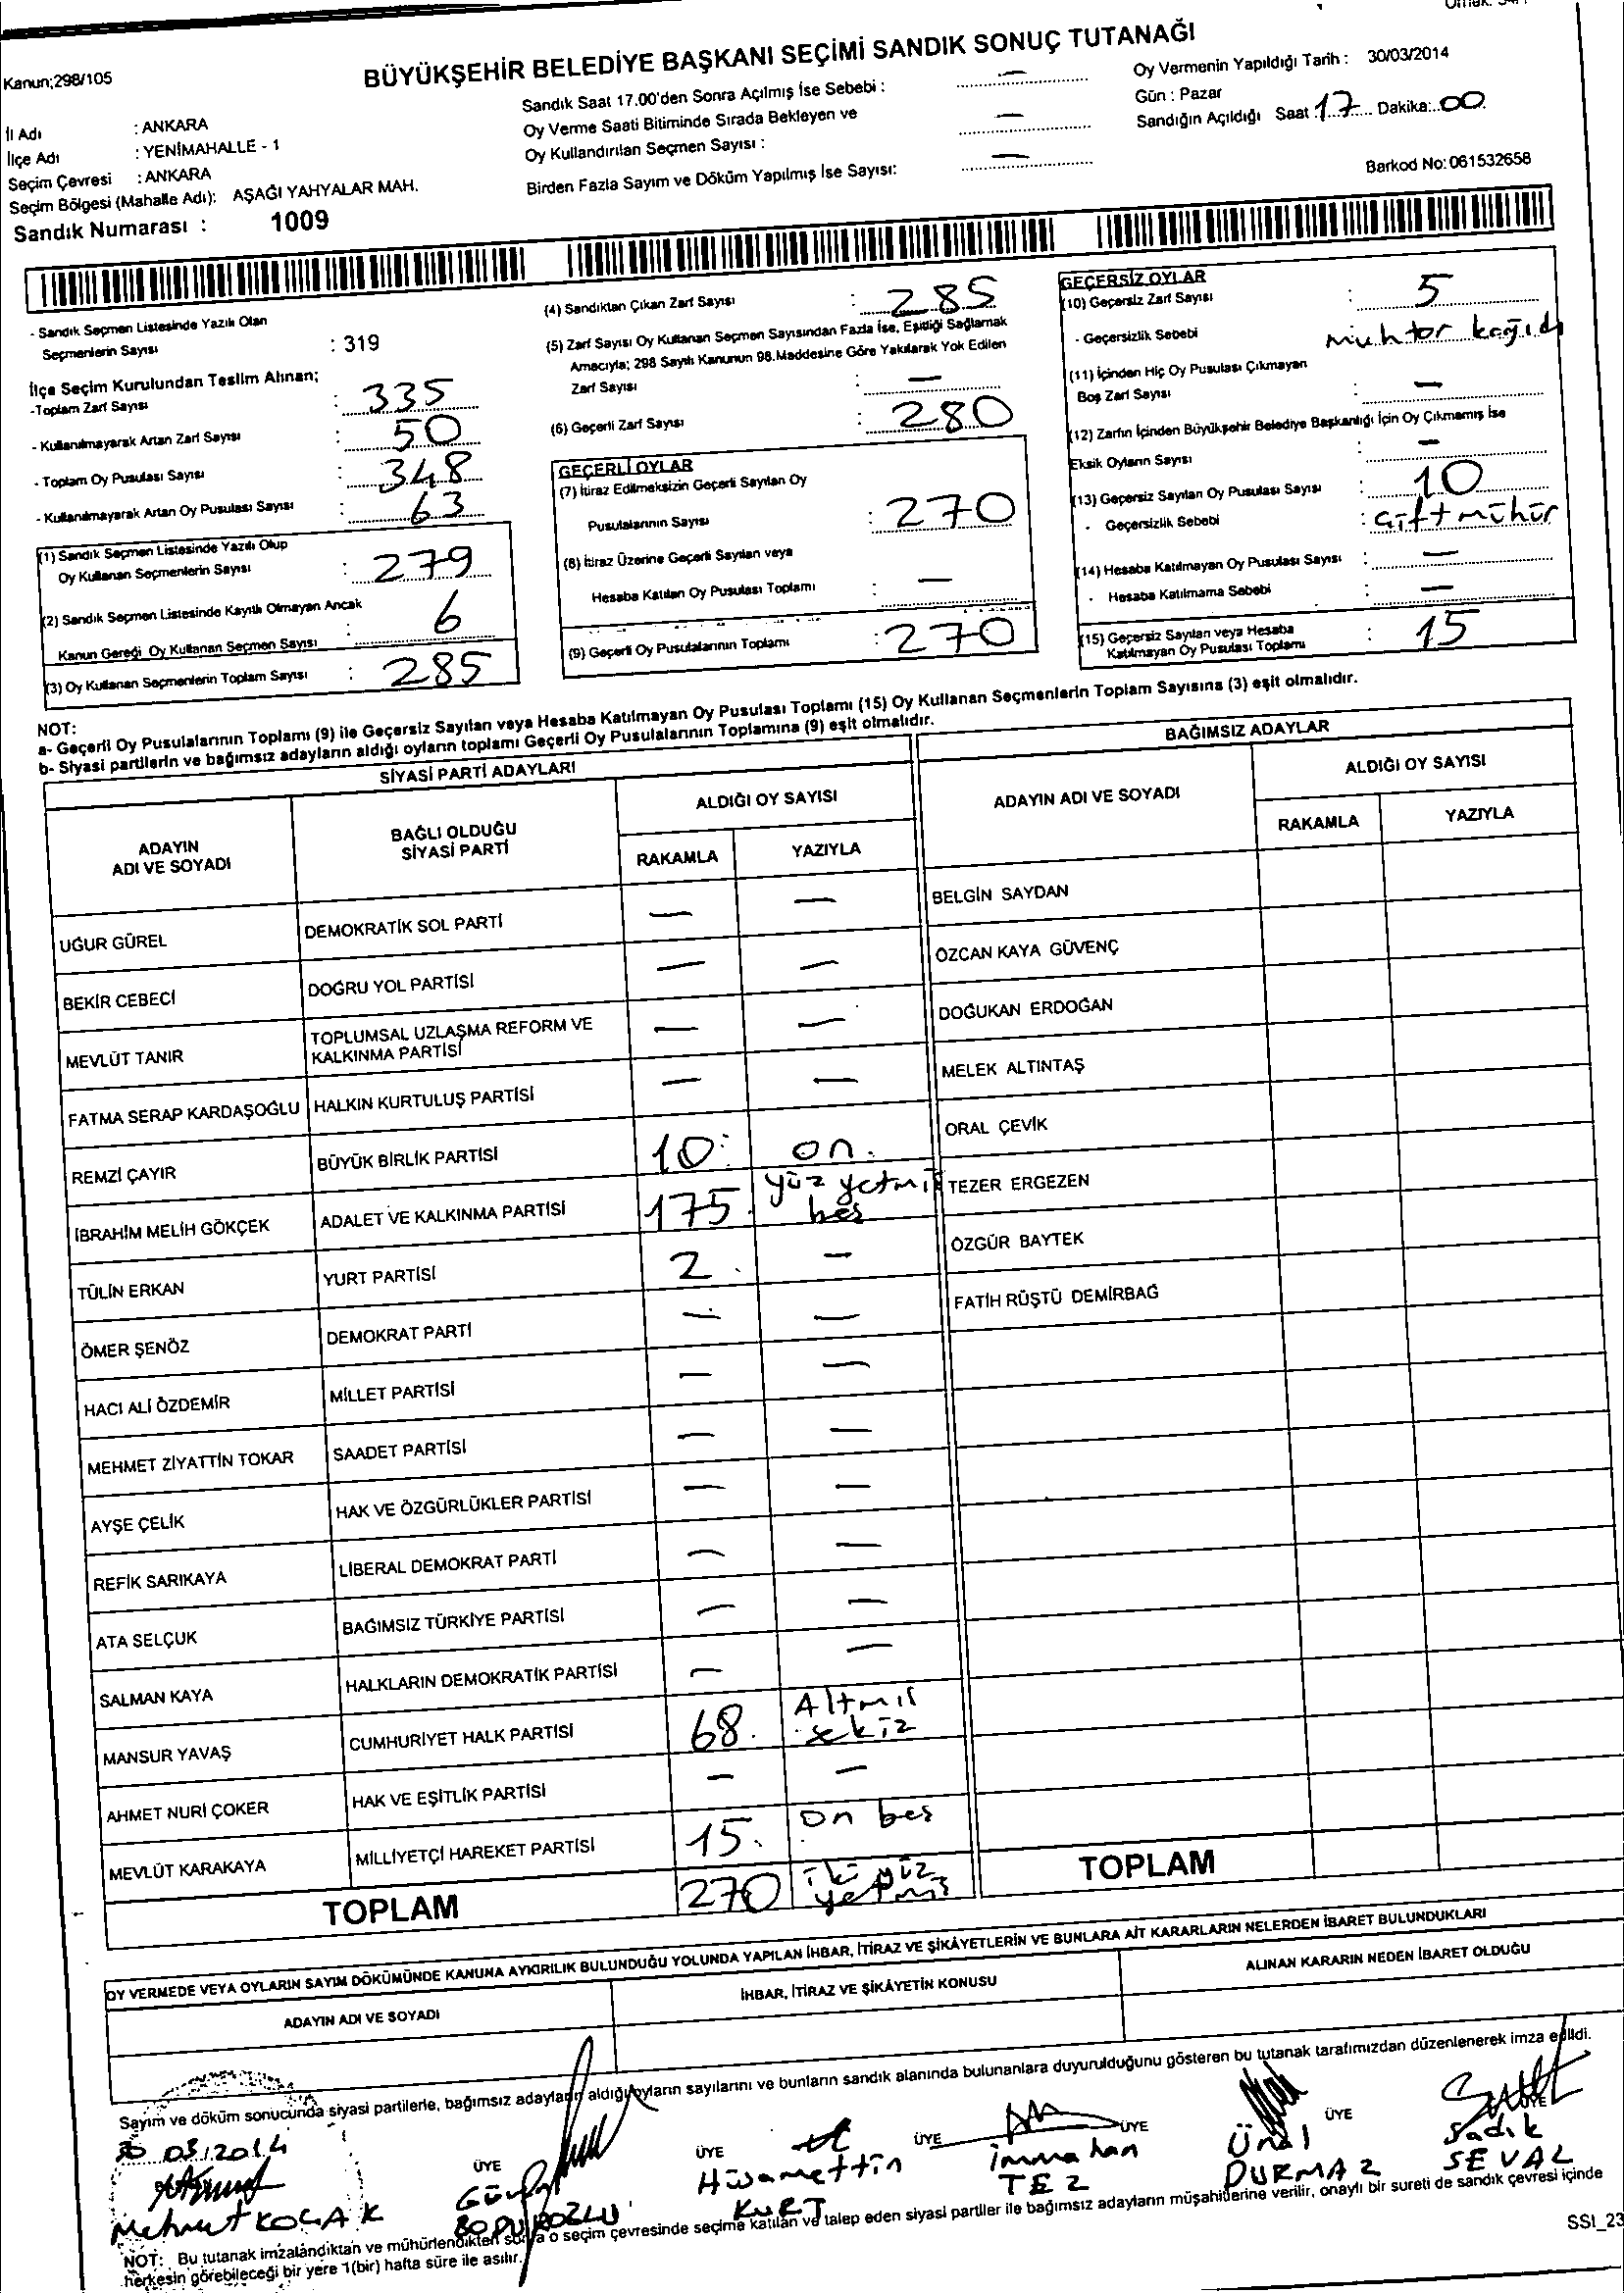 Kanun;298/105
BÜYÜKŞEHİR BELEDİYE BAŞKANI SEÇİMİ SANDIK SONUÇ TUTANAĞI
İl Adı : ANKARA
İlçe Adı : YENİMAHALLE - 1
Seçim Çevresi : ANKARA
Seçim Bölgesi (Mahalle Adı): AŞAĞI YAHYALAR MAH.
Sandık Numarası : 1009
Sandık Saat 17.00'den Sonra Açılmış İse Sebebi : —
Oy Verme Saati Bitiminde Sırada Bekleyen ve
Oy Kullandırılan Seçmen Sayısı : —
Birden Fazla Sayım ve Döküm Yapılmış İse Sayısı: —
Oy Vermenin Yapıldığı Tarih : 30/03/2014
Gün : Pazar
Sandığın Açıldığı Saat : 17 Dakika: 00
Barkod No: 061532658
- Sandık Seçmen Listesinde Yazılı Olan
Seçmenlerin Sayısı : 319
İlçe Seçim Kurulundan Teslim Alınan;
-Toplam Zarf Sayısı : 335
- Kullanılmayarak Artan Zarf Sayısı : 50
- Toplam Oy Pusulası Sayısı : 348
- Kullanılmayarak Artan Oy Pusulası Sayısı : 63
(1) Sandık Seçmen Listesinde Yazılı Olup
Oy Kullanan Seçmenlerin Sayısı : 279
(2) Sandık Seçmen Listesinde Kayıtlı Olmayan Ancak
Kanun Gereği Oy Kullanan Seçmen Sayısı : 6
(3) Oy Kullanan Seçmenlerin Toplam Sayısı : 285
(4) Sandıktan Çıkan Zarf Sayısı : 285
(5) Zarf Sayısı Oy Kullanan Seçmen Sayısından Fazla İse, Eşitliği Sağlamak
Amacıyla; 298 Sayılı Kanunun 98.Maddesine Göre Yakılarak Yok Edilen
Zarf Sayısı : —
(6) Geçerli Zarf Sayısı : 280
GEÇERLİ OYLAR
(7) İtiraz Edilmeksizin Geçerli Sayılan Oy
Pusulalarının Sayısı : 270
(8) İtiraz Üzerine Geçerli Sayılan veya
Hesaba Katılan Oy Pusulası Toplamı : —
(9) Geçerli Oy Pusulalarının Toplamı : 270
GEÇERSİZ OYLAR
(10) Geçersiz Zarf Sayısı : 5
- Geçersizlik Sebebi muhtar kağıdı
(11) İçinden Hiç Oy Pusulası Çıkmayan
Boş Zarf Sayısı : —
(12) Zarfın İçinden Büyükşehir Belediye Başkanlığı İçin Oy Çıkmamış İse
Eksik Oyların Sayısı : —
(13) Geçersiz Sayılan Oy Pusulası Sayısı : 10
- Geçersizlik Sebebi : çift mühür
(14) Hesaba Katılmayan Oy Pusulası Sayısı : —
- Hesaba Katılmama Sebebi : —
(15) Geçersiz Sayılan veya Hesaba
Katılmayan Oy Pusulası Toplamı : 15
NOT:
a- Geçerli Oy Pusulalarının Toplamı (9) ile Geçersiz Sayılan veya Hesaba Katılmayan Oy Pusulası Toplamı (15) Oy Kullanan Seçmenlerin Toplam Sayısına (3) eşit olmalıdır.
b- Siyasi partilerin ve bağımsız adayların aldığı oyların toplamı Geçerli Oy Pusulalarının Toplamına (9) eşit olmalıdır.
SİYASİ PARTİ ADAYLARI
ADAYIN ADI VE SOYADI
BAĞLI OLDUĞU SİYASİ PARTİ
ALDIĞI OY SAYISI
RAKAMLA YAZIYLA
UĞUR GÜREL DEMOKRATİK SOL PARTİ — —
BEKİR CEBECİ DOĞRU YOL PARTİSİ — —
MEVLÜT TANIR TOPLUMSAL UZLAŞMA REFORM VE KALKINMA PARTİSİ — —
FATMA SERAP KARDAŞOĞLU HALKIN KURTULUŞ PARTİSİ — —
REMZİ ÇAYIR BÜYÜK BİRLİK PARTİSİ 10 on
İBRAHİM MELİH GÖKÇEK ADALET VE KALKINMA PARTİSİ 175 yüz yetmiş beş
TÜLİN ERKAN YURT PARTİSİ 2 —
ÖMER ŞENÖZ DEMOKRAT PARTİ — —
HACI ALİ ÖZDEMİR MİLLET PARTİSİ — —
MEHMET ZİYATTİN TOKAR SAADET PARTİSİ — —
AYŞE ÇELİK HAK VE ÖZGÜRLÜKLER PARTİSİ — —
REFİK SARIKAYA LİBERAL DEMOKRAT PARTİ — —
ATA SELÇUK BAĞIMSIZ TÜRKİYE PARTİSİ — —
SALMAN KAYA HALKLARIN DEMOKRATİK PARTİSİ — —
MANSUR YAVAŞ CUMHURİYET HALK PARTİSİ 68. Altmış sekiz
AHMET NURİ ÇOKER HAK VE EŞİTLİK PARTİSİ — —
MEVLÜT KARAKAYA MİLLİYETÇİ HAREKET PARTİSİ 15. on beş
TOPLAM 270 iki yüz yetmiş
BAĞIMSIZ ADAYLAR
ADAYIN ADI VE SOYADI
ALDIĞI OY SAYISI
RAKAMLA YAZIYLA
BELGİN SAYDAN
ÖZCAN KAYA GÜVENÇ
DOĞUKAN ERDOĞAN
MELEK ALTINTAŞ
ORAL ÇEVİK
TEZER ERGEZEN
ÖZGÜR BAYTEK
FATİH RÜŞTÜ DEMİRBAĞ
TOPLAM
OY VERMEDE VEYA OYLARIN SAYIM DÖKÜMÜNDE KANUNA AYKIRILIK BULUNDUĞU YOLUNDA YAPILAN İHBAR, İTİRAZ VE ŞİKÂYETLERİN VE BUNLARA AİT KARARLARIN NELERDEN İBARET BULUNDUKLARI
ADAYIN ADI VE SOYADI
İHBAR, İTİRAZ VE ŞİKÂYETİN KONUSU
ALINAN KARARIN NEDEN İBARET OLDUĞU
Sayım ve döküm sonucunda siyasi partilerle, bağımsız adayların aldığı oyların sayılarını ve bunların sandık alanında bulunanlara duyurulduğunu gösteren bu tutanak tarafımızdan düzenlenerek imza edildi.
30.03.2014
ÜYE ÜYE ÜYE ÜYE ÜYE
Mehmet KOÇAK
Hüsamettin KURT
TEZ
Ünal DURMAZ
Sadık SEVAL
NOT: Bu tutanak imzalandıktan ve mühürlendikten sonra o seçim çevresinde seçime katılan ve talep eden siyasi partiler ile bağımsız adayların müşahitlerine verilir, onaylı bir sureti de sandık çevresi içinde
herkesin görebileceği bir yere 1(bir) hafta süre ile asılır.